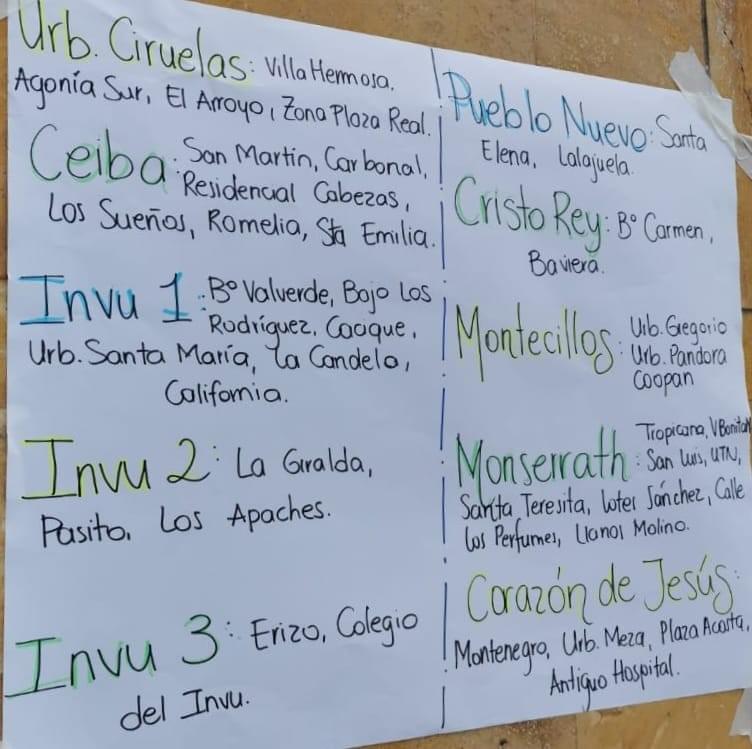 Urb. Ciruelas: Villa Hermosa,
Agonía Sur, El Arroyo, Zona Plaza Real.
Ceiba: San Martín, Carbonal,
Residencial Cabezas,
Los Sueños, Romelia, Sta Emilia.
Invu 1: B° Valverde, Bajo Los
Rodríguez, Caoque,
Urb. Santa María, La Candela,
California.
Invu 2: La Giralda,
Pasito, Los Apaches.
Invu 3: Erizo, Colegio
del Invu.
Pueblo Nuevo: Santa
Elena, Lalajuela.
Cristo Rey: B° Carmen,
Baviera.
Montecillos: Urb. Gregorio
Urb. Pandora
Coopan
Monserrath: Tropicana, V Bonita
San Luis, UTN,
Santa Teresita, Lotes Sánchez, Calle
Los Perfumes, Llanos Molino.
Corazón de Jesús:
Montenegro, Urb. Meza, Plaza Acosta,
Antiguo Hospital.